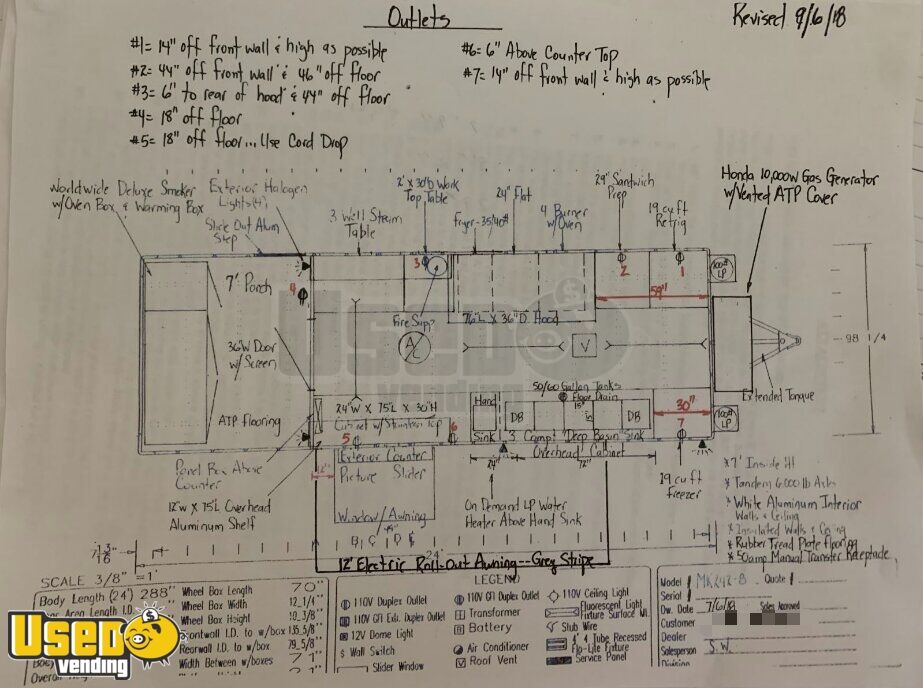 Outlets
Revised 9/6/18
#1= 14" off front wall & high as possible
#2= 44" off front wall & 46" off floor
#3= 6" to rear of hood & 44" off floor
#4= 18" off floor
#5= 18" off floor... Use Cord Drop
#6= 6" Above Counter Top
#7= 14" off front wall & high as possible
Worldwide Deluxe Smoker
w/Oven Box & Warming Box
Exterior Halogen
Lights(4)
Slide Out Alum
Step
3 Well Steam
Table
2' x 30"D Work
Top Table
Fryer-35/40#
24" Flat
4 Burner
w/Oven
29" Sandwich
Prep
19 cu ft
Refrig
Honda 10,000w Gas Generator
w/Vented ATP Cover
7' Porch
4
3
2
1
100#
LP
59"
76"L x 36"D Hood
Fire Supp.
A/C
V
98 1/4
36"W Door
w/Screen
ATP Flooring
Extended Tongue
24"W x 75"L x 30"H
Cabinet w/Stainless Top
50/60 Gallon Tanks
Floor Drain
Hand
Sink
DB
15"
DB
3 Compt "Deep Basin" Sink
Overhead Cabinet
30"
7
100#
LP
5
6
Exterior Counter
Picture Slider
Window/Awning
12"
24"
72"
Panel Box Above
Counter
12"W x 75"L Overhead
Aluminum Shelf
On Demand LP Water
Heater Above Hand Sink
19 cu ft
freezer
* 7' Inside Ht
* Tandem 6,000 lb Axles
* White Aluminum Interior
Walls & Ceiling
* Insulated Walls & Ceiling
* Rubber Tread Plate Flooring
* 50amp Manual Transfer Receptacle
24'
12' Electric Roll-Out Awning--Grey Stripe
SCALE 3/8" = 1'
Body Length (24') 288"
Wheel Box Length 70"
Wheel Box Width 12 1/4"
Wheel Box Height
Frontwall I.D. to w/box 135 5/8"
Rearwall I.D. to w/box 79 5/8"
Width Between w/boxes 71"
LEGEND
110V Duplex Outlet
110V GFI Ext. Duplex Outlet
12V Dome Light
Wall Switch
Slider Window
110V GFI Duplex Outlet
Transformer
Battery
Air Conditioner
Roof Vent
110V Ceiling Light
Fluorescent Light
Fixture Surface Mt.
Stub Wire
4' 4 Tube Recessed
Flo-Lite Fixture
Service Panel
Model MK242-8 Quote
Serial
Dw. Date 7/6/18 Sales Approved
Customer
Dealer
Salesperson S.W.
Division
USED
vending